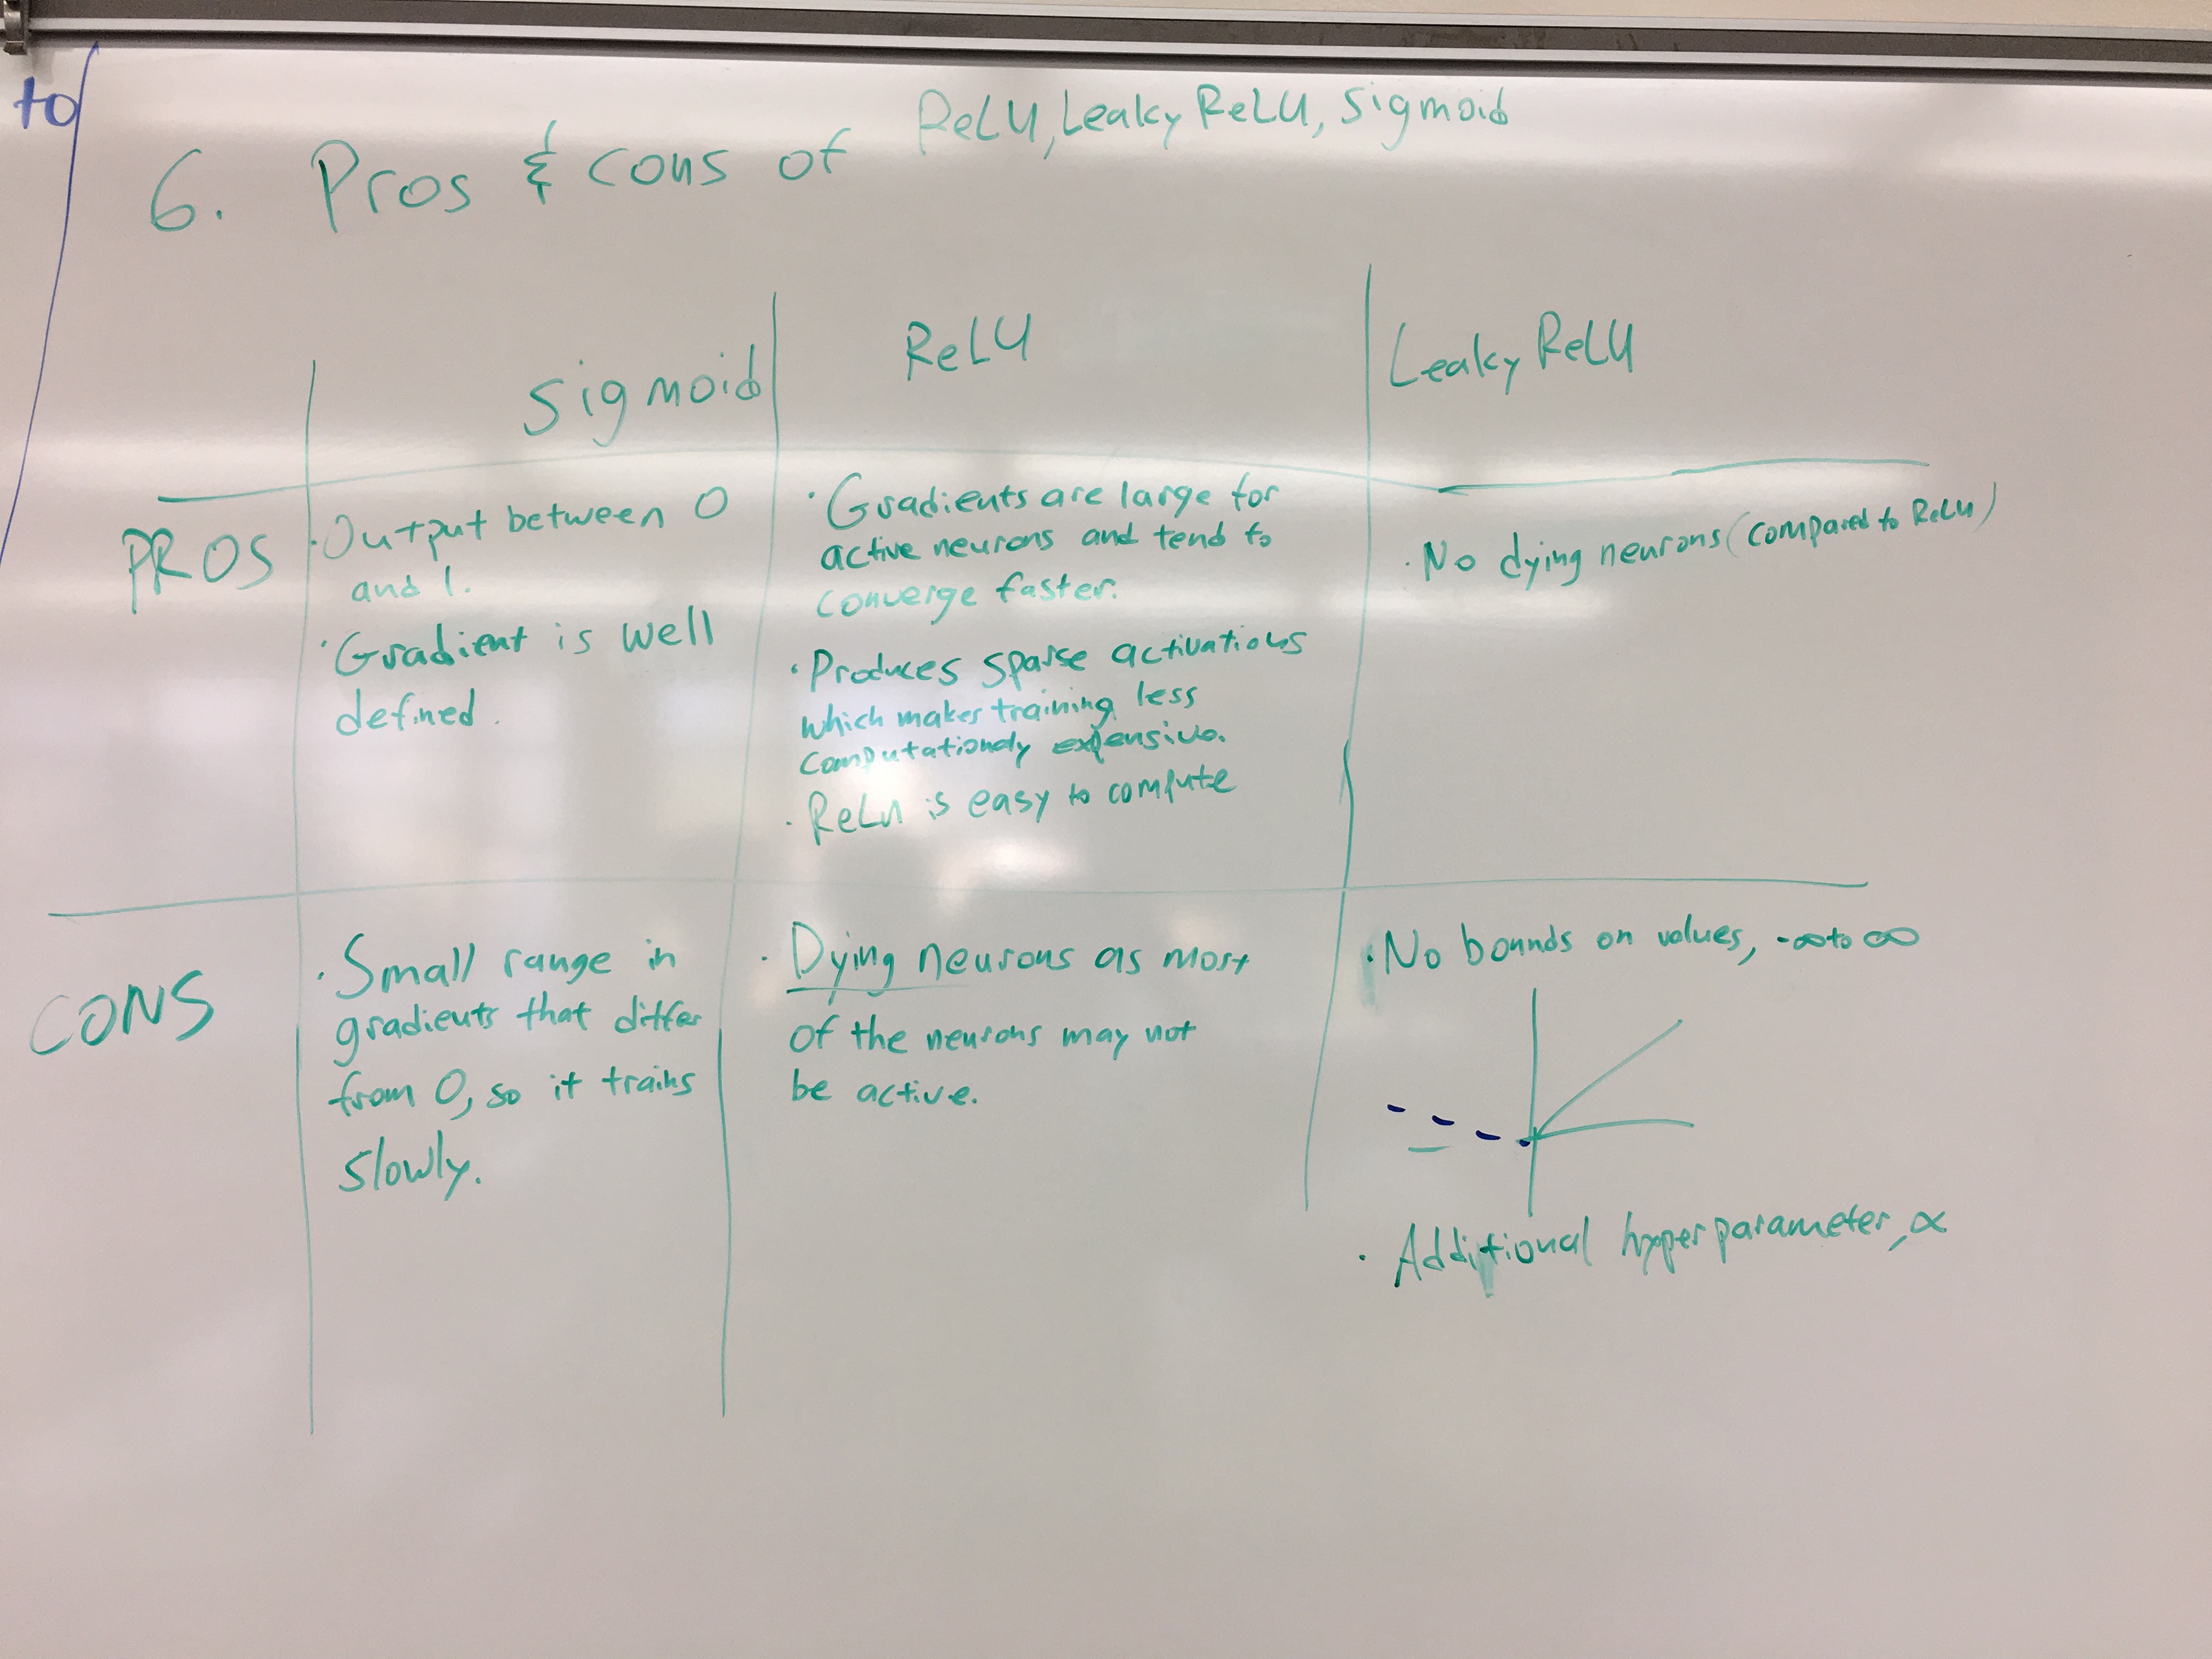 to
6. Pros & cons of ReLU, Leaky ReLU, Sigmoid
Sigmoid
ReLU
Leaky ReLU
PROS
· Output between 0
and 1.
· Gradient is well
defined.
· Gradients are large for
active neurons and tend to
converge faster.
· Produces sparse activations
which makes training less
computationaly expensive.
· ReLu is easy to compute
· No dying neurons (compared to ReLU)
CONS
· Small range in
gradients that differ
from 0, so it trains
slowly.
· Dying neurons as most
of the neurons may not
be active.
· No bounds on values, -∞ to ∞
· Additional hyperparameter, α